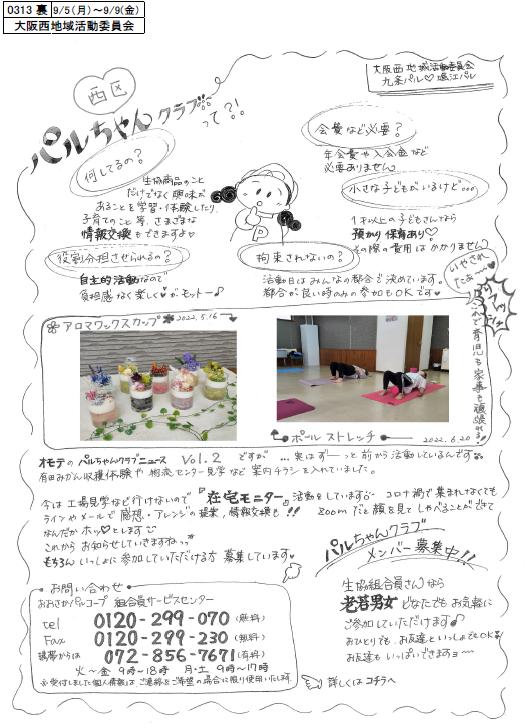 0313 裏 9/5(月)～9/9(金)
大阪西地域活動委員会
大阪西地域活動委員会
九条パル♡堀江パル
西区
パルちゃんクラブって?!
何してるの?
生協商品のこと
だけでなく興味が
あることを学習・体験したり
子育てのこと等、さまざまな
情報交換もできます♡
会費など必要?
年会費や入会金など
必要ありません。
小さな子どもがいるけど…
1才以上の子どもさんなら
預かり保育あり♡
その際の費用はかかりません
役割分担させられるの?
自主的活動なので
負担感なく楽しく♡がモットー♪
拘束されないの?
活動日はみんなの都合で決めています。
都合が良い時のみの参加もOKです♥
いやされたぁ～♡
これで育児も家事も頑張れる!
アロマワックスカップ 2022.5.16
ポールストレッチ 2022.6.20
オモテのパルちゃんクラブニュース Vol.2 ですが …実はずーっと前から活動しているんです
有田みかん収穫体験や物流センター見学など案内チラシを入れていました。
今は工場見学など行けないので『在宅モニター』活動をしています
ラインやメールで感想・アレンジの提案,情報交換も!!
なんだかホッとします
これからお知らせしていきますね
もちろんいっしょに参加していただける方募集しています♥
コロナ禍で集まれなくても
zoomだと顔を見てしゃべることができて
パルちゃんクラブ
メンバー募集中!!
生協組合員さんなら
老若男女どなたでもお気軽に
ご参加していただけます♪
おひとりでも、お友達といっしょでもOK
お友達もいっぱいできますョ～
詳しくはコチラへ
お問い合わせ
おおさかパルコープ 組合員サービスセンター
tel 0120-299-070(無料)
Fax 0120-299-230(無料)
携帯からは 072-856-7671(有料)
火～金 9時～18時 月・土 9時～17時
※受付しました個人情報は ご連絡とご希望の場合に限り使用いたします。